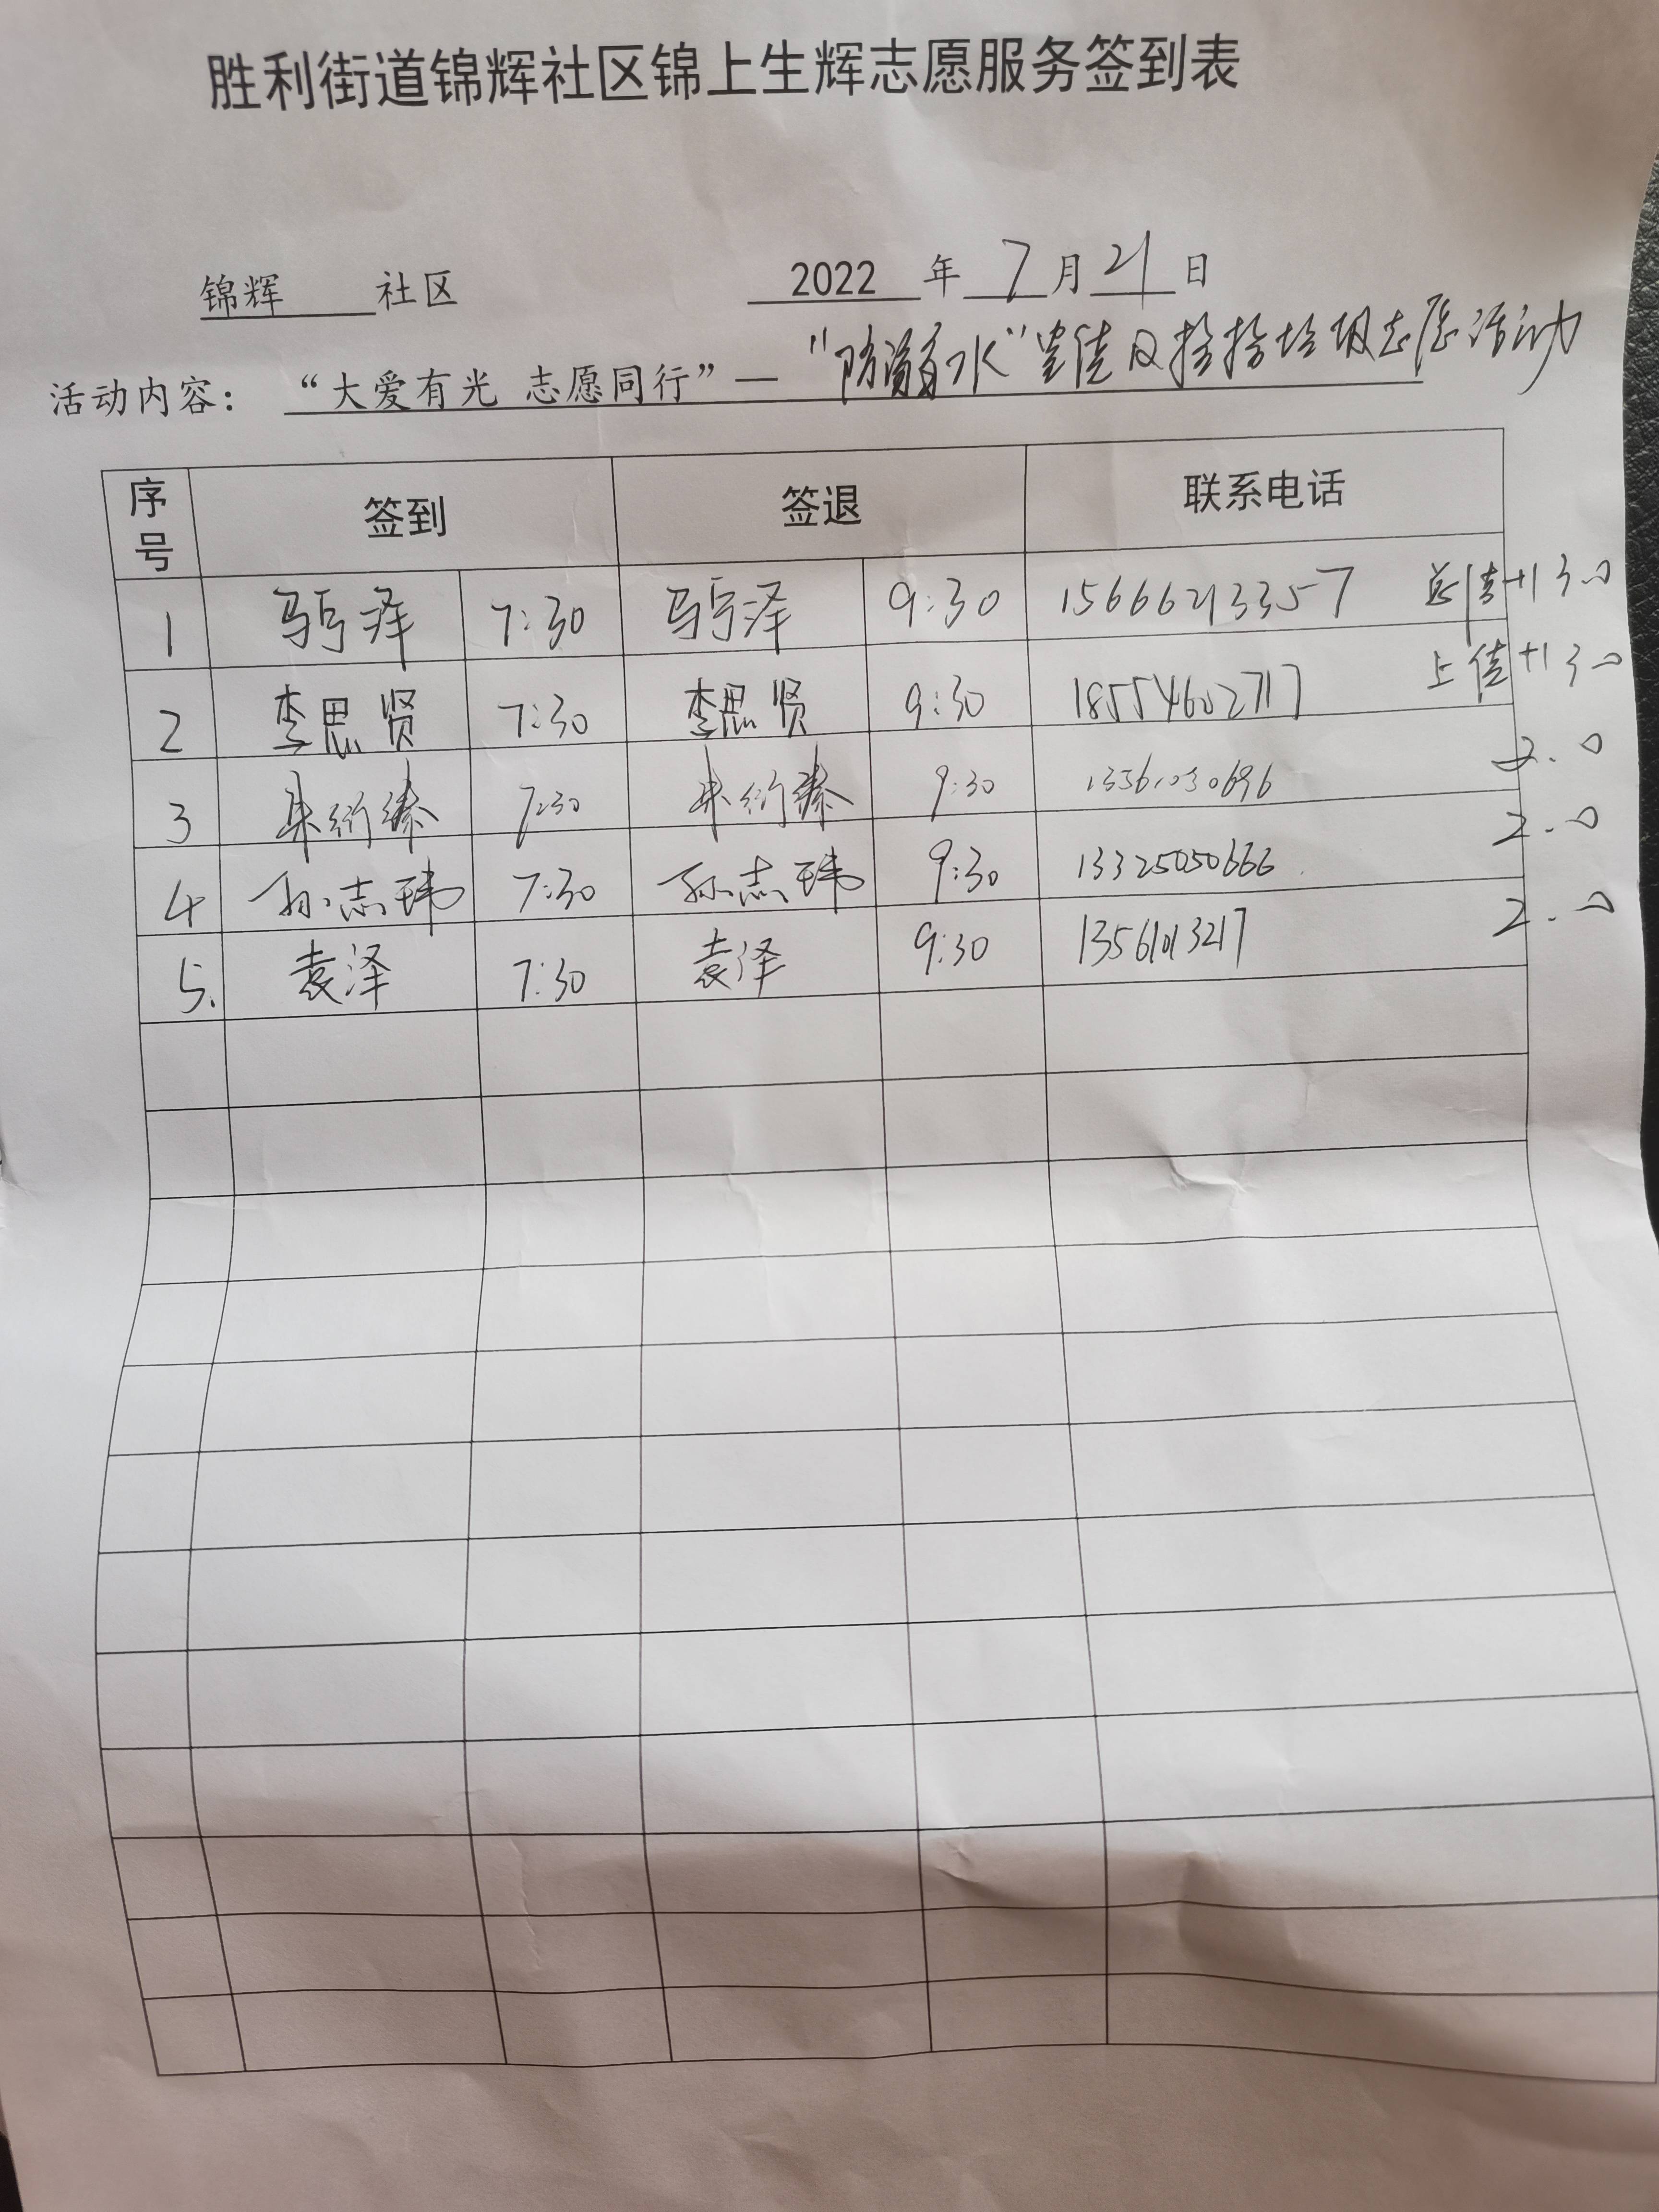 胜利街道锦辉社区锦上生辉志愿服务签到表
锦辉 社区 2022 年 7 月 21 日
活动内容： “大爱有光 志愿同行”— “防溺水”宣传及捡拾垃圾志愿活动
序号 签到 签退 联系电话
1 马亨泽 7:30 马亨泽 9:30 15666213357 +1 3.0
2 李思贤 7:30 李思贤 9:30 18554602717 上传+1 3.0
3 7:30 9:30 13561030696 2.0
4 孙志玮 7:30 孙志玮 9:30 13325050666 2.0
5. 袁泽 7:30 袁泽 9:30 2.0